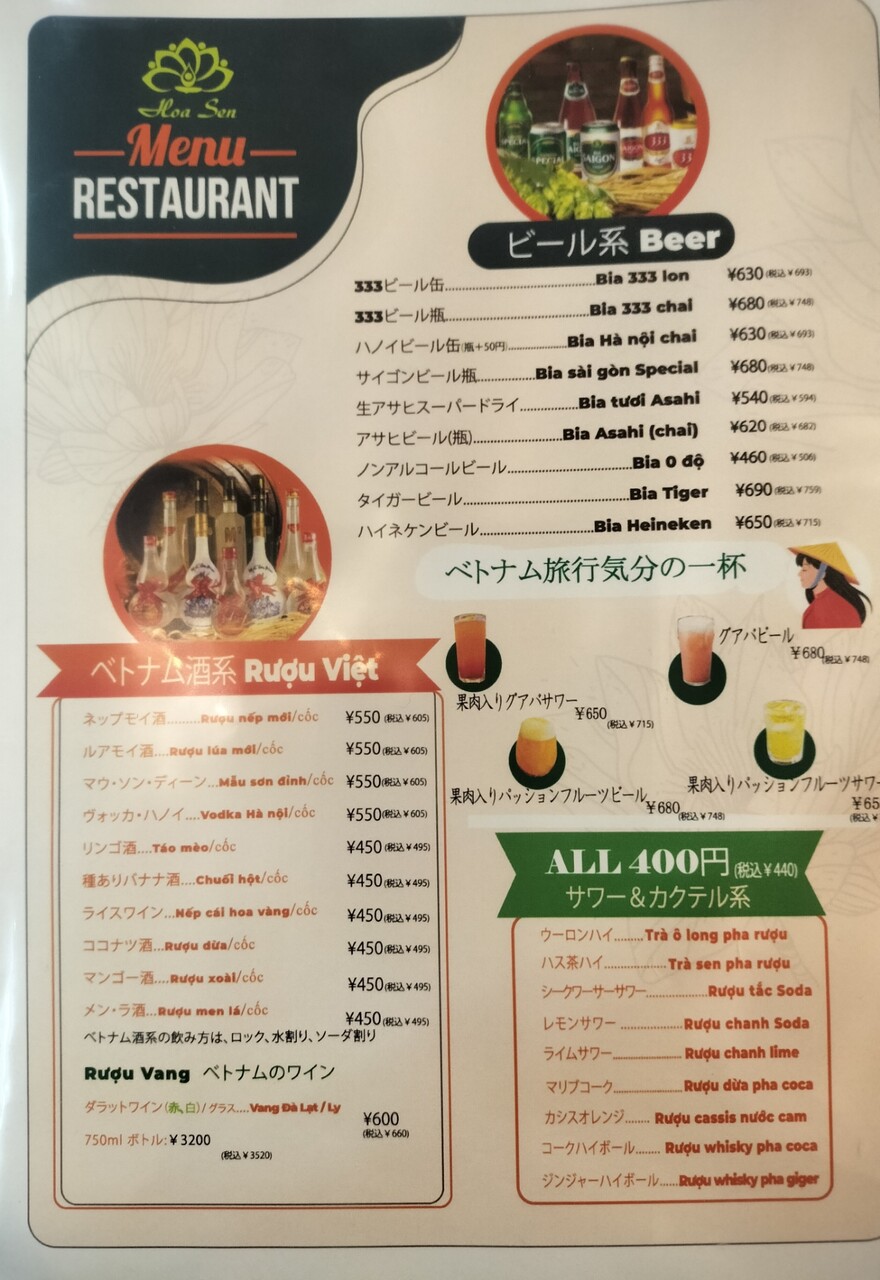 Hoa Sen
Menu
RESTAURANT
ビール系 Beer
333ビール缶..............................Bia 333 lon ¥630(税込¥693)
333ビール瓶..............................Bia 333 chai ¥680(税込¥748)
ハノイビール缶(瓶+50円)..................Bia Hà nội chai ¥630(税込¥693)
サイゴンビール瓶............Bia sài gòn Special ¥680(税込¥748)
生アサヒスーパードライ............Bia tươi Asahi ¥540(税込¥594)
アサヒビール(瓶)..................Bia Asahi (chai) ¥620(税込¥682)
ノンアルコールビール.........................Bia 0 độ ¥460(税込¥506)
タイガービール..................................Bia Tiger ¥690(税込¥759)
ハイネケンビール.......................Bia Heineken ¥650(税込¥715)
ベトナム旅行気分の一杯
グアバビール
¥680(税込¥748)
果肉入りグアバサワー
¥650(税込¥715)
果肉入りパッションフルーツビール
¥680(税込¥748)
果肉入りパッションフルーツサワー
¥65
(税込¥
ベトナム酒系 Rượu Việt
ネップモイ酒.........Rượu nếp mới/cốc ¥550(税込¥605)
ルアモイ酒....Rượu lúa mới/cốc ¥550(税込¥605)
マウ・ソン・ディーン...Mẫu sơn đỉnh/cốc ¥550(税込¥605)
ヴォッカ・ハノイ....Vodka Hà nội/cốc ¥550(税込¥605)
リンゴ酒....Táo mèo/cốc ¥450(税込¥495)
種ありバナナ酒....Chuối hột/cốc ¥450(税込¥495)
ライスワイン...Nếp cái hoa vàng/cốc ¥450(税込¥495)
ココナツ酒...Rượu dừa/cốc ¥450(税込¥495)
マンゴー酒....Rượu xoài/cốc ¥450(税込¥495)
メン・ラ酒...Rượu men lá/cốc ¥450(税込¥495)
ベトナム酒系の飲み方は、ロック、水割り、ソーダ割り
Rượu Vang ベトナムのワイン
ダラットワイン(赤、白)/グラス....Vang Đà Lạt / Ly ¥600
(税込¥660)
750ml ボトル:¥3200
(税込¥3520)
ALL 400円(税込¥440)
サワー&カクテル系
ウーロンハイ.........Trà ô long pha rượu
ハス茶ハイ...................Trà sen pha rượu
シークワーサーサワー..................Rượu tắc Soda
レモンサワー..................Rượu chanh Soda
ライムサワー.....................Rượu chanh lime
マリブコーク.....................Rượu dừa pha coca
カシスオレンジ....... Rượu cassis nước cam
コークハイボール....... Rượu whisky pha coca
ジンジャーハイボール......Rượu whisky pha giger